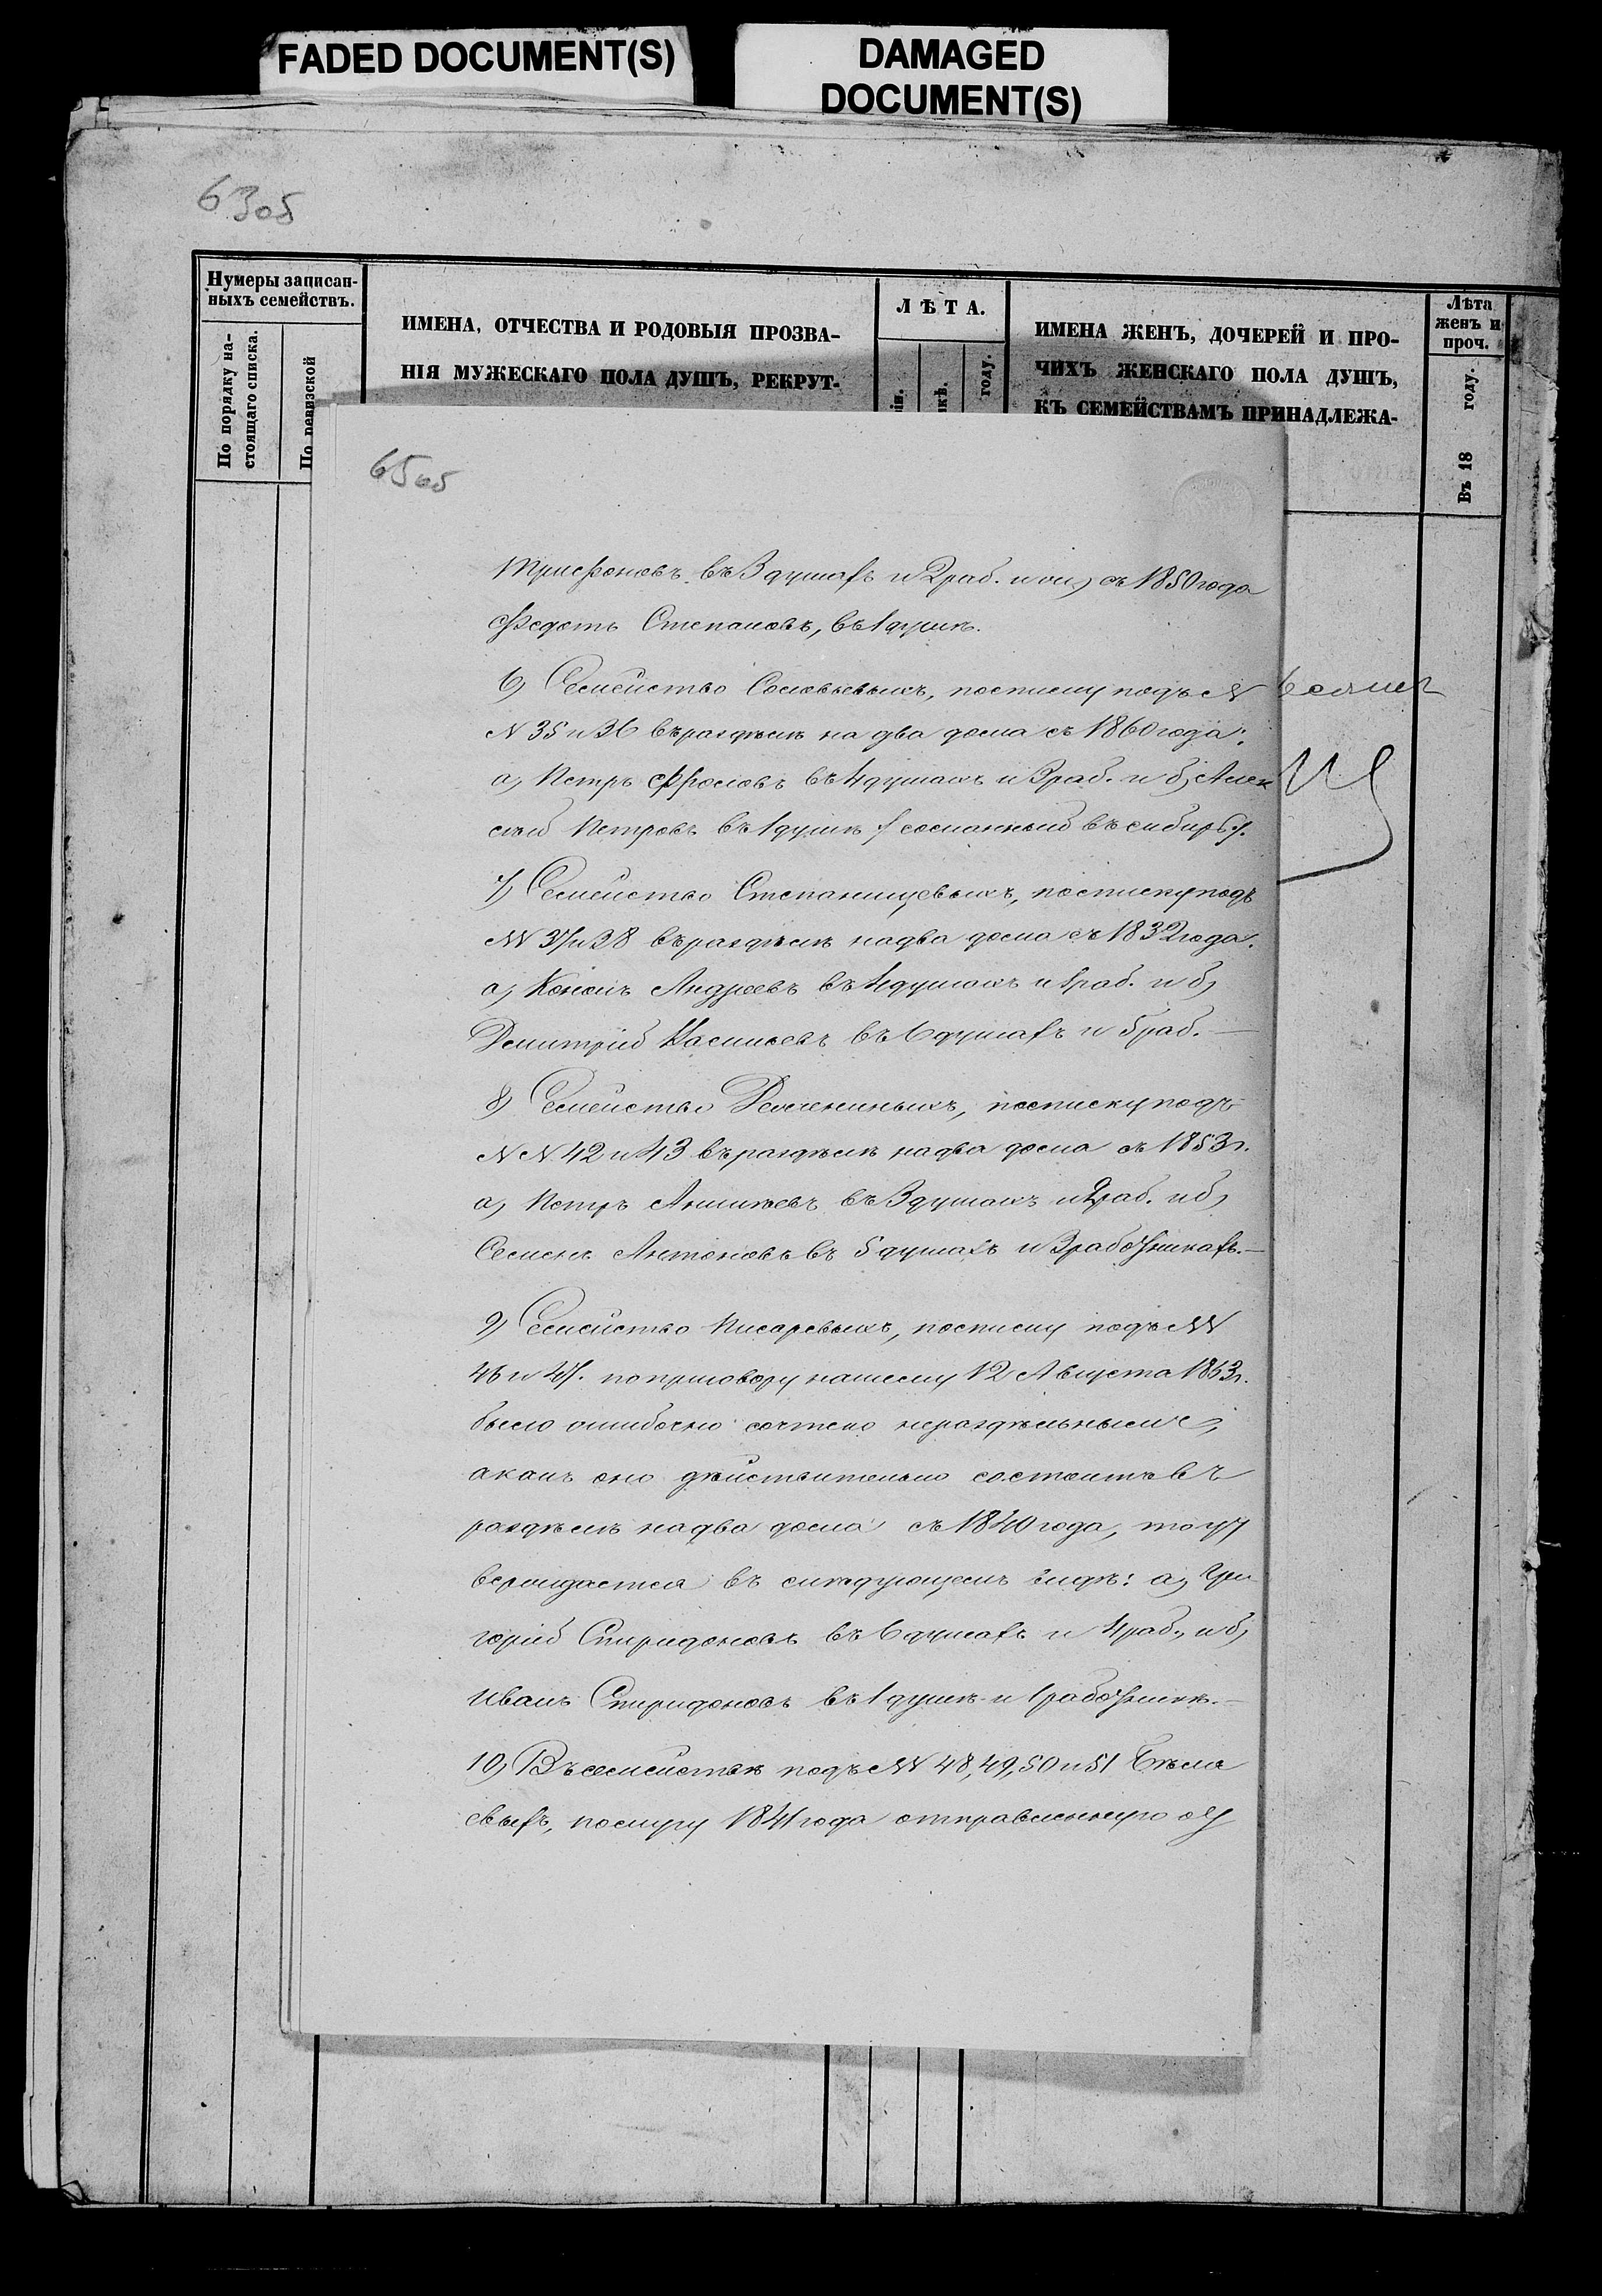 FADED DOCUMENT(S)
DAMAGED
DOCUMENT(S)
63об
Нумеры записан-
ныхъ семействъ.
По порядку на-
стоящаго списка.
По ревизской
ИМЕНА, ОТЧЕСТВА И РОДОВЫЯ ПРОЗВА-
НІЯ МУЖЕСКАГО ПОЛА ДУШЪ, РЕКРУТ-
ЛѢТА.
году.
ИМЕНА ЖЕНЪ, ДОЧЕРЕЙ И ПРО-
ЧИХЪ ЖЕНСКАГО ПОЛА ДУШЪ,
КЪ СЕМЕЙСТВАМЪ ПРИНАДЛЕЖА-
Лѣта
женъ и
проч.
Въ 18 году.
65об
Трифоновъ въ 3 душахъ и 2 раб. и съ 1850 года
Федотъ Степановъ, въ 1 душѣ.
6) Семейство Соловьевыхъ, по списку подъ N
N 35 и 36 въ раздѣлѣ на два дома съ 1860 года:
а) Петръ Фроловъ въ 4 душахъ и 3 раб. и б) Алек
сѣй Петровъ въ 1 душѣ /сосланный въ сибирь/.
7) Семейство Степанищевыхъ, по списку подъ
NN 37 и 38 въ раздѣлѣ на два дома съ 1832 года:
а) Кононъ Андреевъ въ 4 душахъ и 1 раб. и б)
Дмитрій Васильевъ въ 6 душахъ и 5 раб. —
8) Семейство по списку подъ
NN 42 и 43 въ раздѣлѣ на два дома съ 1853 г.
а) Петръ въ 3 душахъ и 2 раб. и б)
Семенъ Антоновъ въ 5 душахъ и 3 работникахъ. —
9) Семейство Писаревыхъ, по списку подъ NN
46 и 47. по приговору нашему 12 Августа 1863 г.
было ошибочно сочтено нераздѣльнымъ,
а какъ оно дѣйствительно состоитъ въ
раздѣлѣ на два дома съ 1840 года, то и
въ слѣдующемъ видѣ: а) Гри
горій Спиридоновъ въ 6 душахъ и 4 раб., и б)
Иванъ Спиридоновъ въ 1 душѣ и 1 работникѣ. —
10) Въ семействѣ подъ NN 48, 49, 50 и 51 Бѣля
евыхъ, послугу 1841 года отправленную